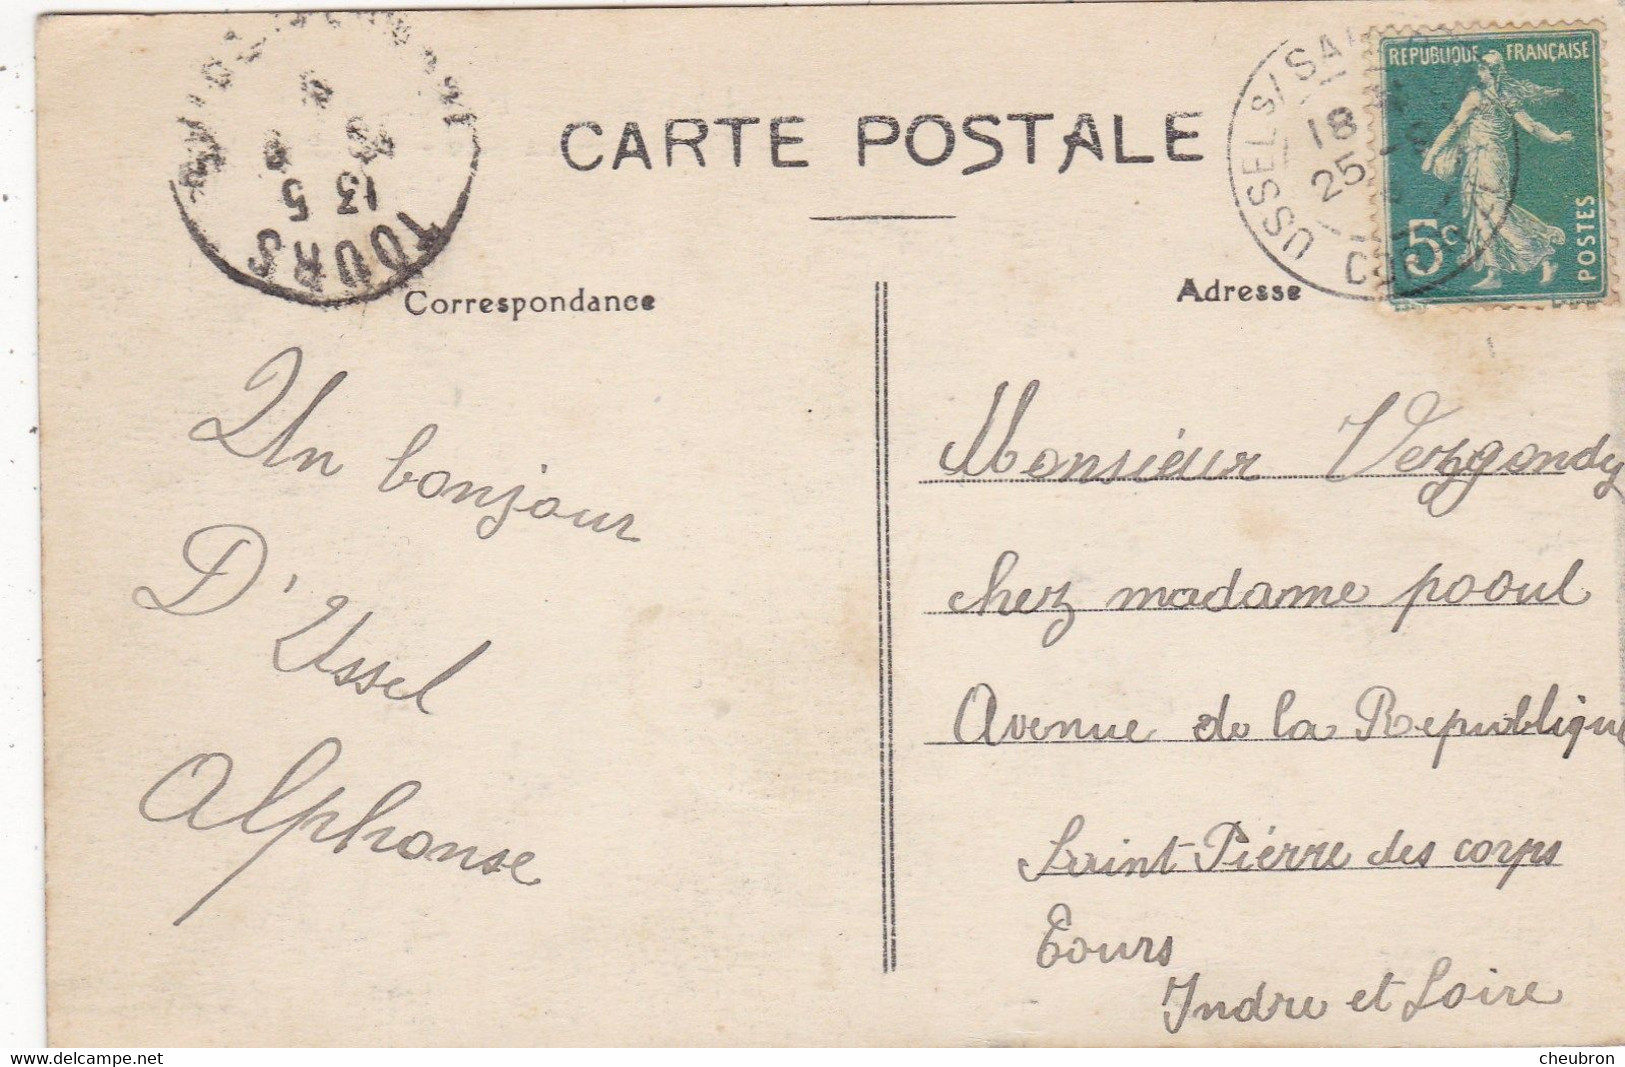 CARTE POSTALE
TOURS
13
5
USSELS/SA
18
25
REPUBLIQUE FRANÇAISE
5c
POSTES
Correspondance
Un bonjour
D'Ussel
Alphonse
Adresse
Monsieur Verzgondy
chez madame pooul
Avenue de la Republique
Saint Piérre des corps
Tours
Indre et Loire
delcampe.net
cheubron